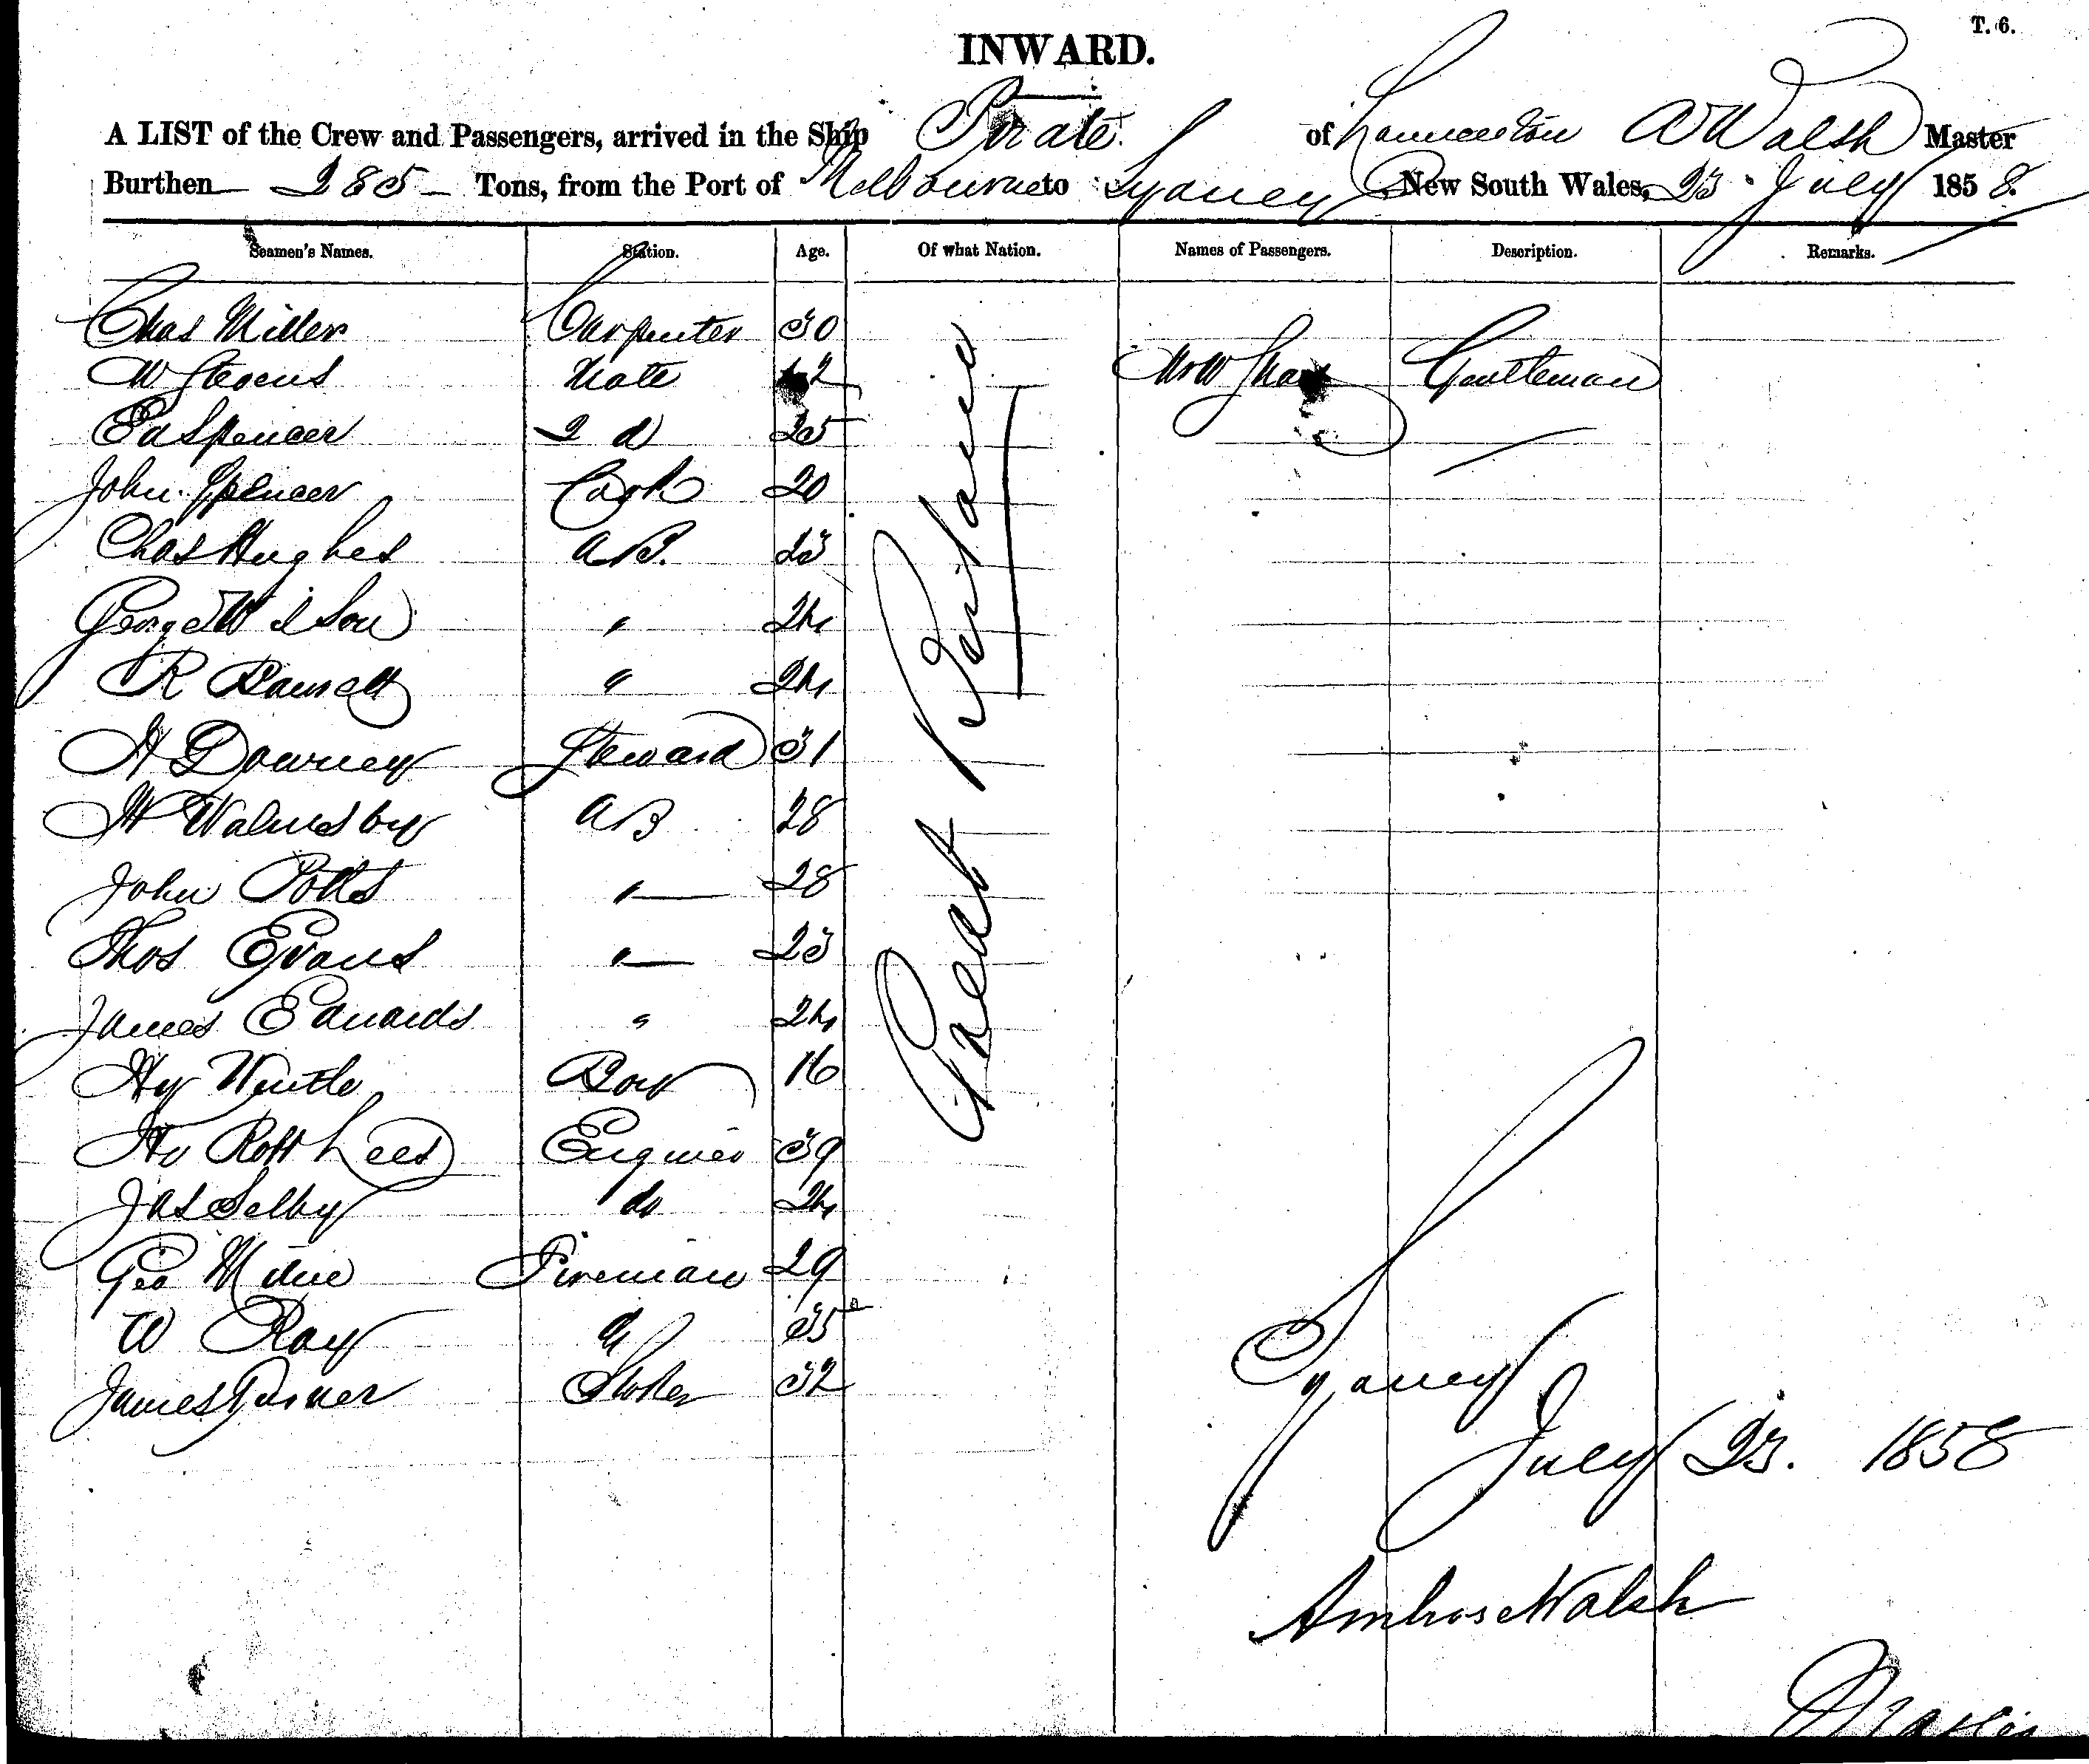 T. 6.
INWARD.
A LIST of the Crew and Passengers, arrived in the Ship Pirate of Launceston A Walsh Master
Burthen 285 Tons, from the Port of Melbourne to Sydney New South Wales, 23 July 1858.
Seamen's Names. Station. Age. Of what Nation. Names of Passengers. Description. Remarks.
Chas Miller Carpenter 30
W Stevens Mate Gentleman
Ed Spencer 2 d 25
John Spencer Cook 20
Chas Hughes AB. 23
George Wilson " 24
R " 24
H Downey Steward 31
W Walmsby AB 28
John Potts " 28
Thos Evans " 23
James Edwards " 24
Hy Wintle Boy 16
Lees Engineer 39
Jas Selby do 24
Geo Milne Fireman 29
W Ray 35
James Turner Stoker 32
Great Britain
Sydney
July 23. 1858
Ambrose Walsh
Master